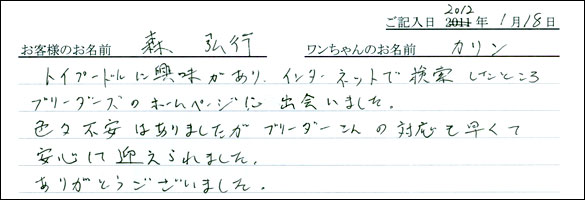 2012
ご記入日 2011 年 1月 18日
お客様のお名前 森 弘行 ワンちゃんのお名前 カリン
トイプードルに興味があり、インターネットで検索したところ
ブリーダーズのホームページに出会いました。
色々不安はありましたがブリーダーさんの対応も早くて
安心して迎えられました。
ありがとうございました。